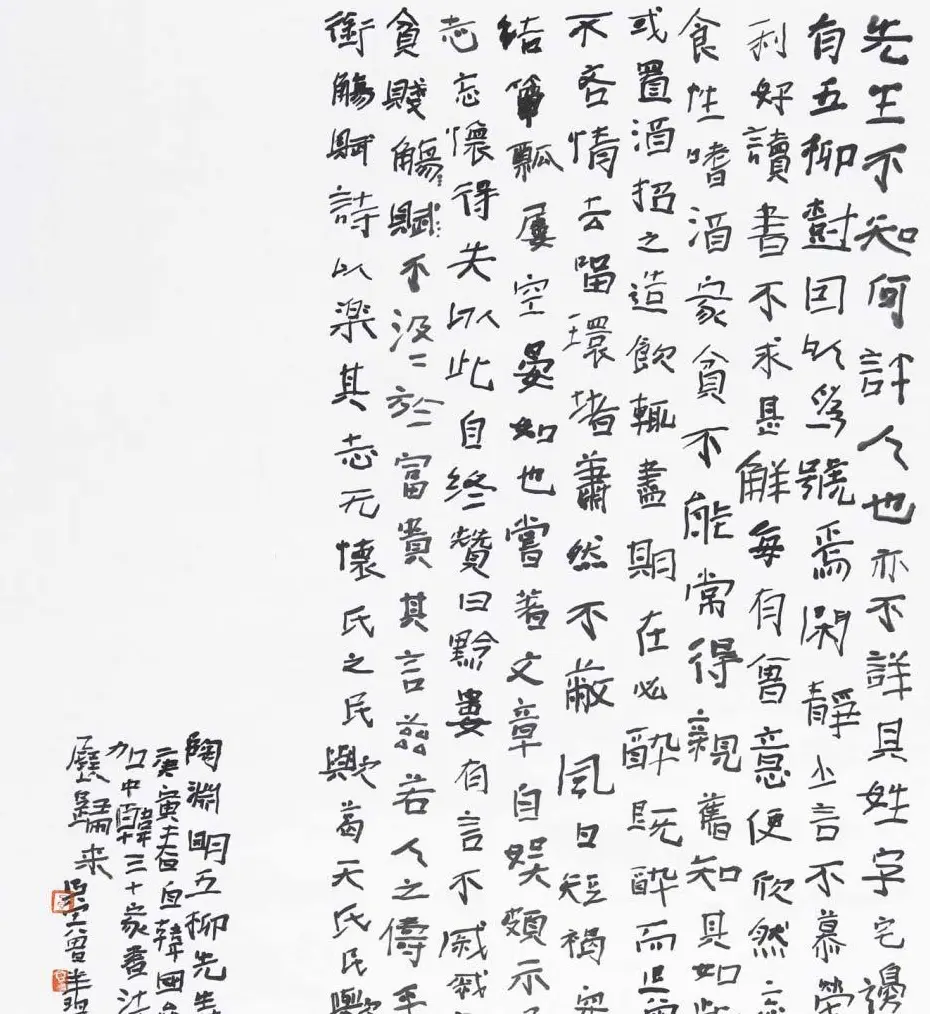 先生不知何許人也亦不詳其姓字宅邊
有五柳樹因以為號焉閑靜少言不慕榮
利好讀書不求甚解每有會意便欣然忘
食性嗜酒家貧不能常得親舊知其如此
或置酒招之造飲輒盡期在必醉既醉而退曾
不吝情去留環堵蕭然不蔽風日短褐穿
結簞瓢屢空晏如也嘗著文章自娛頗示己
志忘懷得失以此自終贊曰黔婁有言不戚戚
貧賤觴賦不汲汲於富貴其言茲若人之儔乎
銜觴賦詩以樂其志无懷氏之民歟葛天氏民歟
陶淵明五柳先生
庚寅春自韓國參
加中韓三十家書法
展歸來